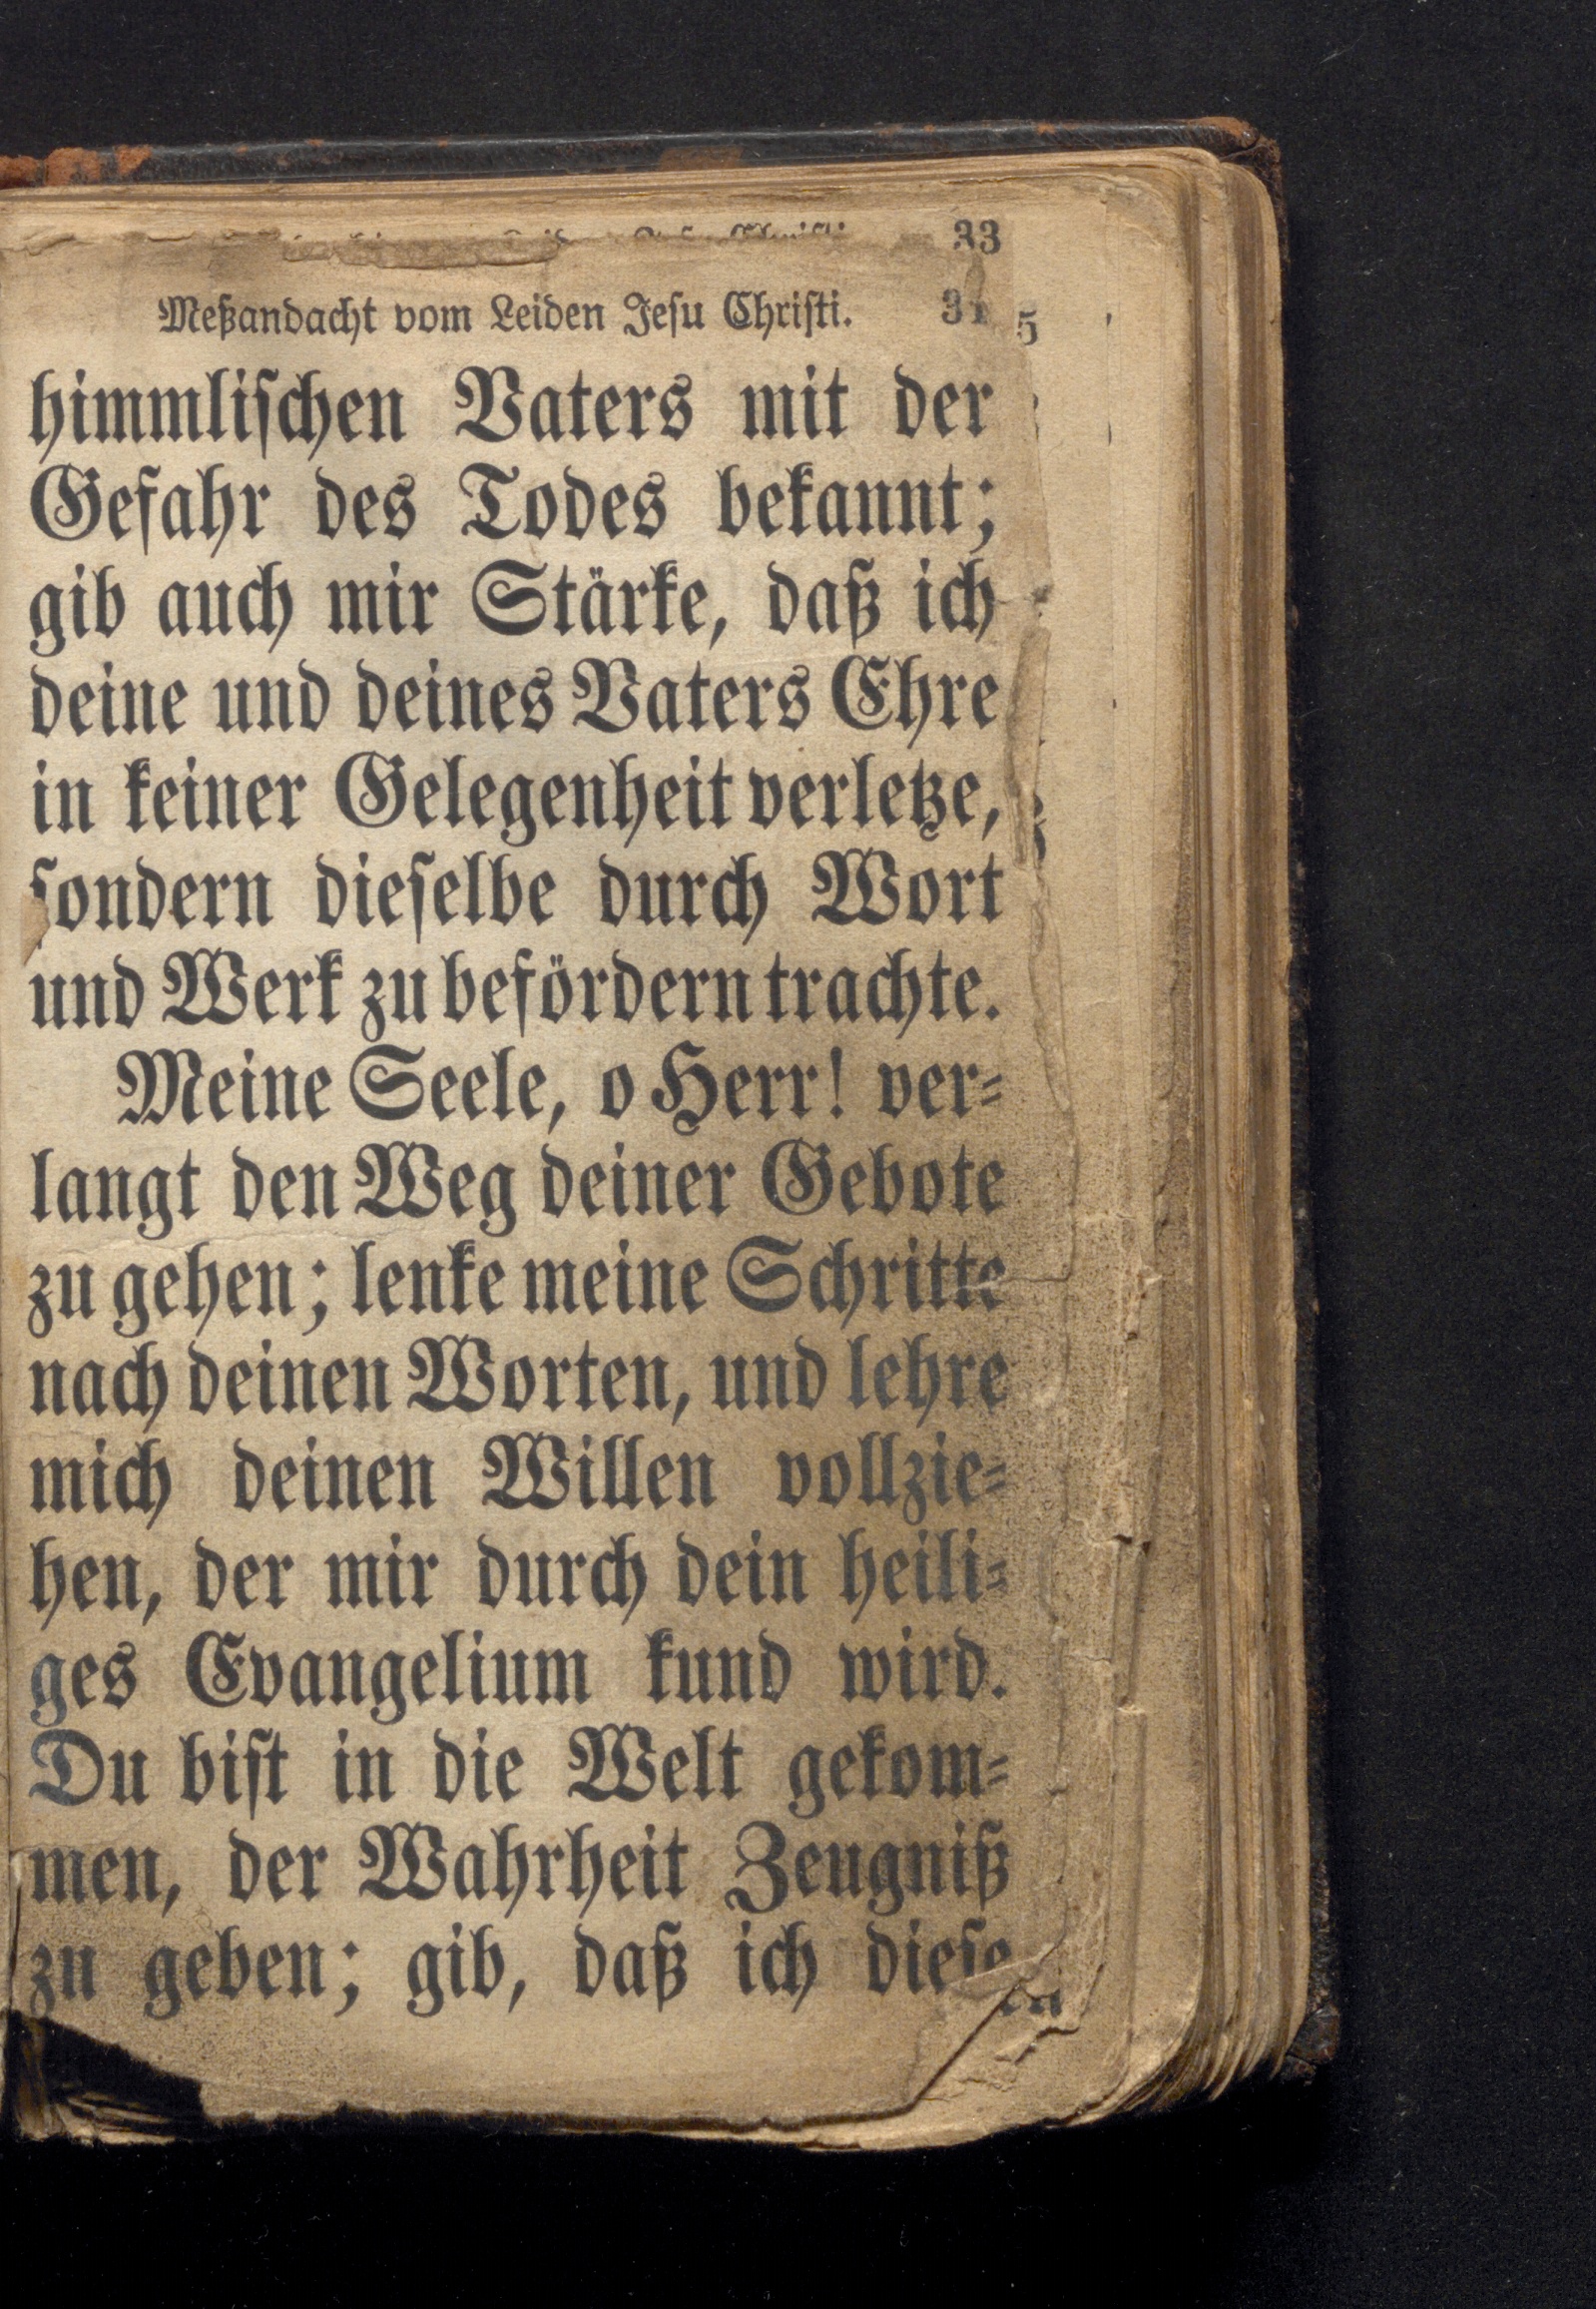 33
Meßandacht vom Leiden Jeſu Chriſti. 31
himmliſchen Vaters mit der
Gefahr des Todes bekannt;
gib auch mir Stärke, daß ich
deine und deines Vaters Ehre
in keiner Gelegenheit verletze,
ſondern dieſelbe durch Wort
und Werk zu befördern trachte.
Meine Seele, o Herr! ver⸗
langt den Weg deiner Gebote
zu gehen; lenke meine Schritte
nach deinen Worten, und lehre
mich deinen Willen vollzie⸗
hen, der mir durch dein heili⸗
ges Evangelium kund wird.
Du biſt in die Welt gekom⸗
men, der Wahrheit Zeugniß
zu geben; gib, daß ich dieſe